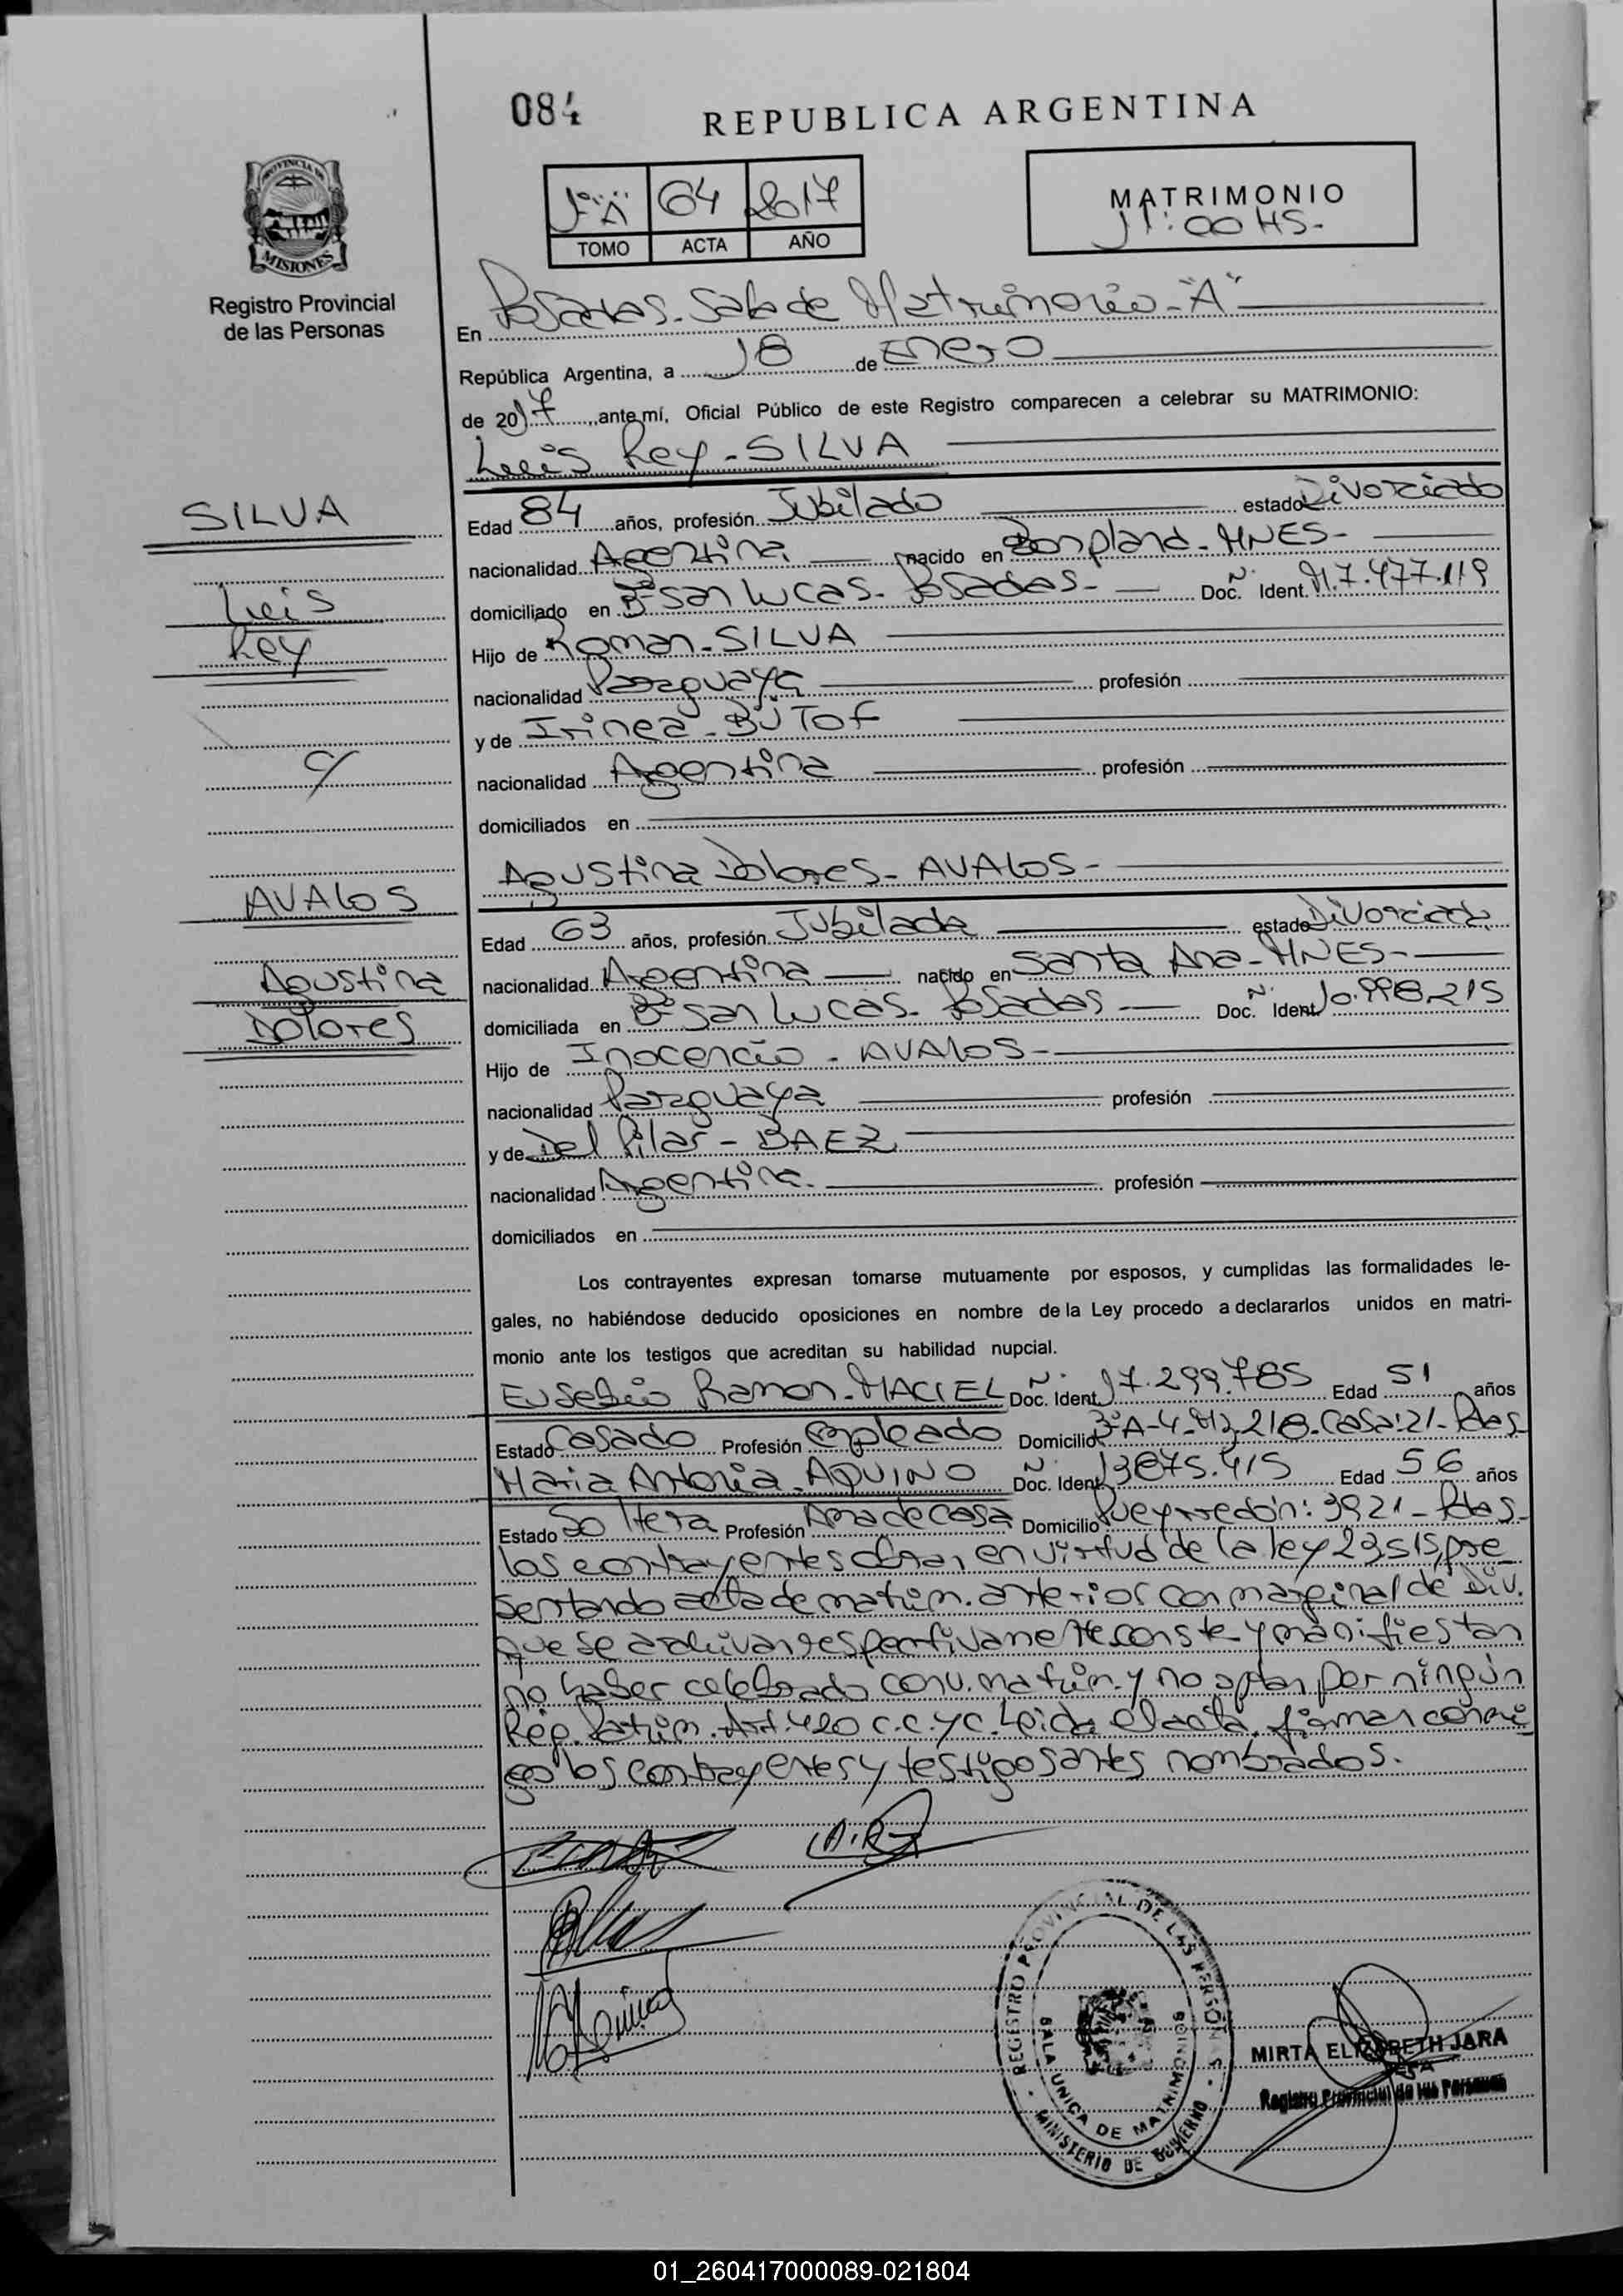 084
REPUBLICA ARGENTINA
1º"A" 64 2017
TOMO ACTA AÑO
MATRIMONIO
11:00 HS-
PROVINCIA DE
MISIONES
Registro Provincial
de las Personas
En Posadas- Sala de Matrimonio-"A"
República Argentina, a 18 de Enero
de 2017 ante mí, Oficial Público de este Registro comparecen a celebrar su MATRIMONIO:
Luis Rey-SILVA
SILVA
Luis
Rey
c/
Edad 84 años, profesión Jubilado estado Divorciado
nacionalidad Argentina nacido en Bonpland-MNES-
domiciliado en Bº San Lucas- Posadas- Doc. Nº Ident. M.7.477.119
Hijo de Roman-SILVA
nacionalidad Paraguaya profesión
y de Irinea-BUTOF
nacionalidad Argentina profesión
domiciliados en
Agustina Dolores- AVALOS-
AVALOS
Agustina
Dolores
Edad 63 años, profesión Jubilada estado Divorciada
nacionalidad Argentina nacido en Santa Ana-MNES-
domiciliada en Bº San Lucas- Posadas Doc. Nº Ident 10.998.215
Hijo de Inocencio - AVALOS-
nacionalidad Paraguaya profesión
y de Del Pilar- BAEZ
nacionalidad Argentina. profesión
domiciliados en
Los contrayentes expresan tomarse mutuamente por esposos, y cumplidas las formalidades le-
gales, no habiéndose deducido oposiciones en nombre de la Ley procedo a declararlos unidos en matri-
monio ante los testigos que acreditan su habilidad nupcial.
Eusebio Ramon-MACIEL Doc. Nº Ident. 17.299.785 Edad 51 años
Estado Casado Profesión Empleado Domicilio A-4- 218-Casa:21-Pdas-
Maria Antonia-AQUINO Doc. Nº Ident. 13875.415 Edad 56 años
Estado Soltera Profesión Ama de casa Domicilio Pueyrredón: 3921-Pdas-
los contrayentes obran en virtud de la ley 23515, pre
sentando acta de matrim. anterior con marginal de Div.
que se archivan respectivamente conste y manifiestan
no haber celebrado conv. matrim. y no optan por ningún
Rég. Patrim. Art. 420 C.C.yC. Leida el acta, firman conmi
go los contrayentes y testigos antes nombrados.
REGISTRO PROVINCIAL DE LAS PERSONAS
SALA UNICA DE MATRIMONIOS
MINISTERIO DE GOBIERNO
MIRTA ELIZABETH JARA
JEFA
Registro Provincial de las Personas
01_260417000089-021804